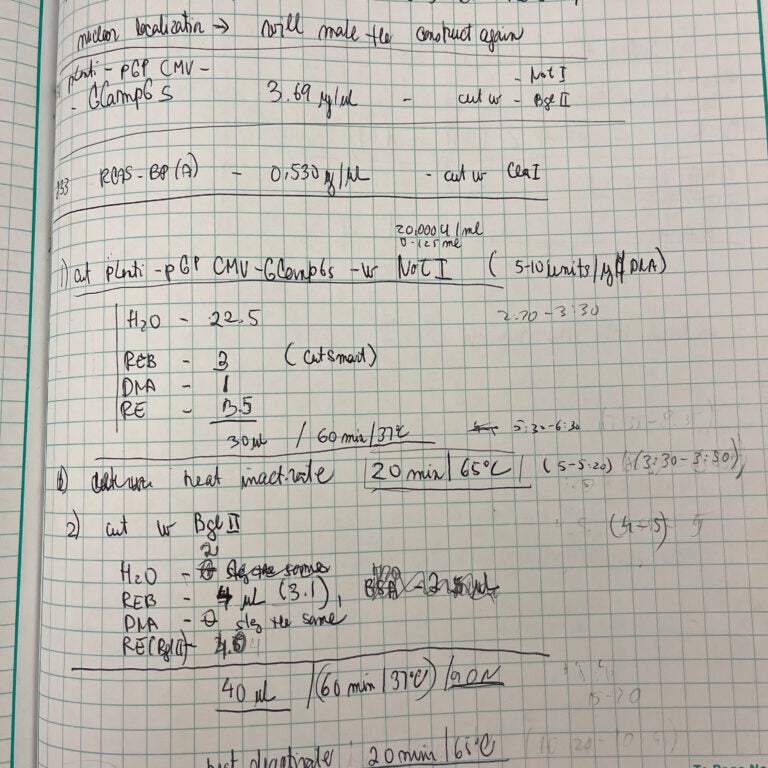 nuclear localization → will make the construct again
plenti - pGP CMV -
- GCamp6s 3.69 µg/µl - cut w - Not I
- Bgl II
RCAS-BP(A) - 0.530 µg/µl - cut w Cla I
20,000 U/ml
0.125 ml
1) cut plenti - pGP CMV-GCamp6s - w Not I ( 5-10 units/µg DNA)
H2O - 22.5
2:20 - 3:30
REB - 3 (cutsmart)
DNA - 1
RE - 3.5
30 µl / 60 min / 37°C 5:30-6:30
heat inactivate 20 min / 65°C (5-5:20) (3:30-3:50)
2) cut w Bgl II (4-5) 5
H2O - 2
REB - 4 µl (3.1),
DNA - 0 the same
RE(Bgl II) - 4.0
40 µl / (60 min / 37°C) / O N
5-20
20 min / 65°C